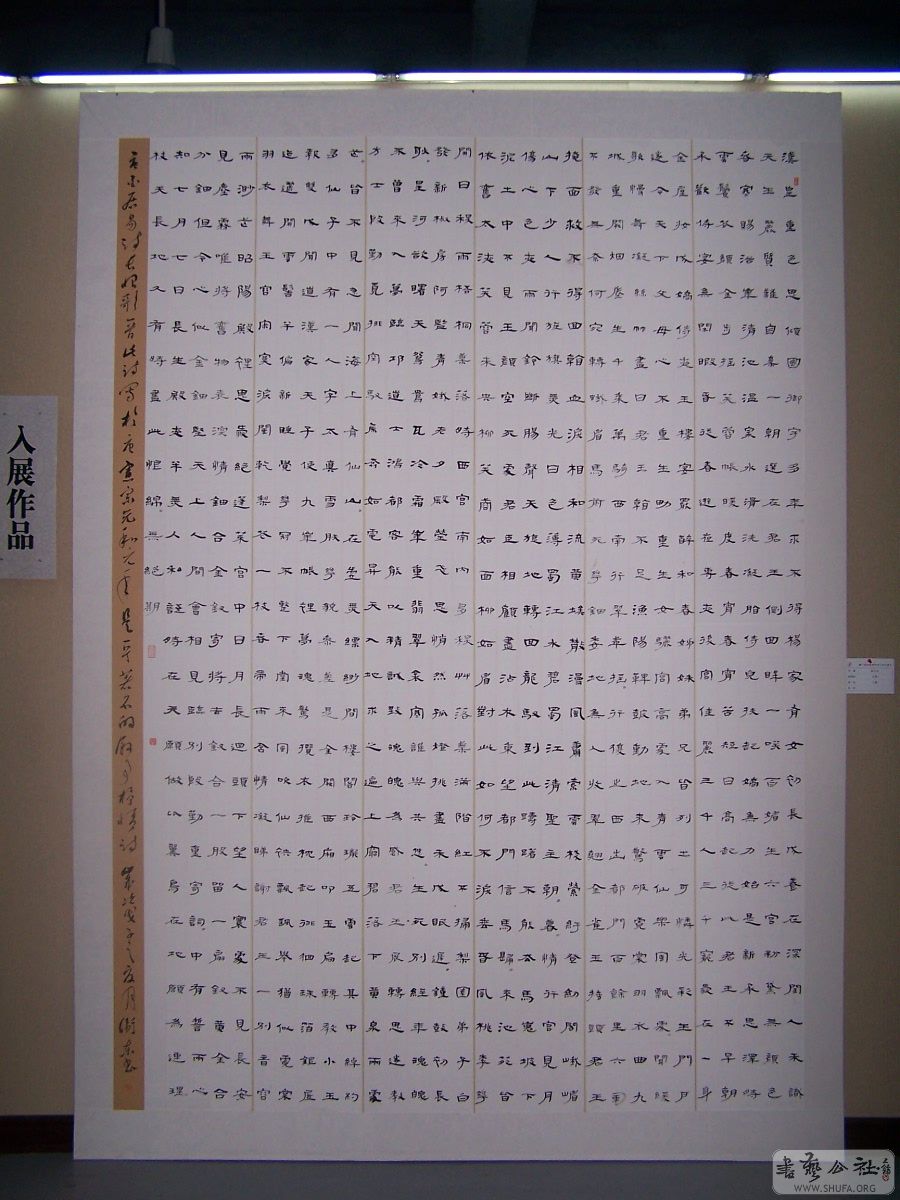 漢皇重色思傾國御宇多年求不得楊家有女初長成養在深閨人未識
天生麗質難自棄一朝選在君王側回眸一笑百媚生六宮粉黛無顏色
春寒賜浴華清池溫泉水滑洗凝脂侍兒扶起嬌無力始是新承恩澤時
雲鬢花顏金步搖芙蓉帳暖度春宵春宵苦短日高起從此君王不早朝
承歡侍宴無閑暇春從春遊夜專夜後宮佳麗三千人三千寵愛在一身
金屋妝成嬌侍夜玉樓宴罷醉和春姊妹弟兄皆列土可憐光彩生門戶
遂令天下父母心不重生男重生女驪宮高處入青雲仙樂風飄處聞緩
歌慢舞凝絲竹盡日君王看不足漁陽鼙鼓動地來驚破霓裳羽衣曲九
城重闕烟塵生千乘萬騎西南行翠華搖行復止西出都門百餘里六軍
不發無奈何宛轉蛾眉馬前死花鈿委地無人收翠翹金雀玉搔頭君王
掩面救不得回看血淚相和流黃埃散漫風蕭索雲棧縈紆登劍閣峨嵋
山下少人行旌旗無光日色薄蜀江水碧蜀山青聖主朝暮情行宮見月
傷心色夜雨聞鈴斷腸聲天旋地轉迴龍馭到此躊躇不能去馬嵬坡下
泥土中不見玉顏空死處君臣相顧盡沾衣東望都門信馬歸來池苑皆
依舊太液芙蓉未央柳芙蓉如面柳如眉對此如何不淚垂春風桃李花
開日秋雨梧桐葉落時西宮南內多秋草落葉滿階紅不掃梨園弟子白
發新椒房阿監青娥老夕殿螢飛思悄然孤燈挑盡未成眠遲鐘鼓初長
耿星河欲曙天鴛鴦瓦冷霜華重翡翠衾寒誰與共悠生死別經年魂魄
不曾來入夢臨邛道士鴻都客能以精誠致魂魄為感君王展轉思遂教
方士殷勤覓排空馭氣奔如電昇天入地求之遍上窮碧落下黃泉兩處
茫皆不見忽聞海上有仙山在虛無縹緲間樓閣玲瓏五雲起其中綽約
多仙子中有一人字太真雪膚花貌參差是金闕西廂叩玉扃轉教小玉
報雙成聞道漢家天子使九華帳裡夢魂驚攬衣推枕起徘徊珠箔銀屏
迤邐開雲髻半偏新睡覺花冠不整下堂來風吹仙袂飄飄舉猶似霓裳
羽衣舞玉容寂寞淚闌干梨花一枝春帶雨含情凝睇謝君王一別音容
兩渺茫昭陽殿裡恩愛絕蓬萊宮中日月長迴頭下望人寰處不見長安
見塵霧唯將舊物表深情鈿合金釵寄將去釵留一股合一扇釵擘黃金合
分鈿但令心似金鈿堅天上人間會相見臨別殷勤重寄詞中有誓兩心
知七月七日長生殿夜半無人私語時在天願做比翼鳥在地願為連理
枝天長地久有時盡此恨綿無絕期
白居易詩長恨歌此詩寫於唐憲宗元和元年是一首著名的敘事抒情詩歲次戊子之夏月衛東書
入展作品
書藝公社
WWW.SHUFA.ORG